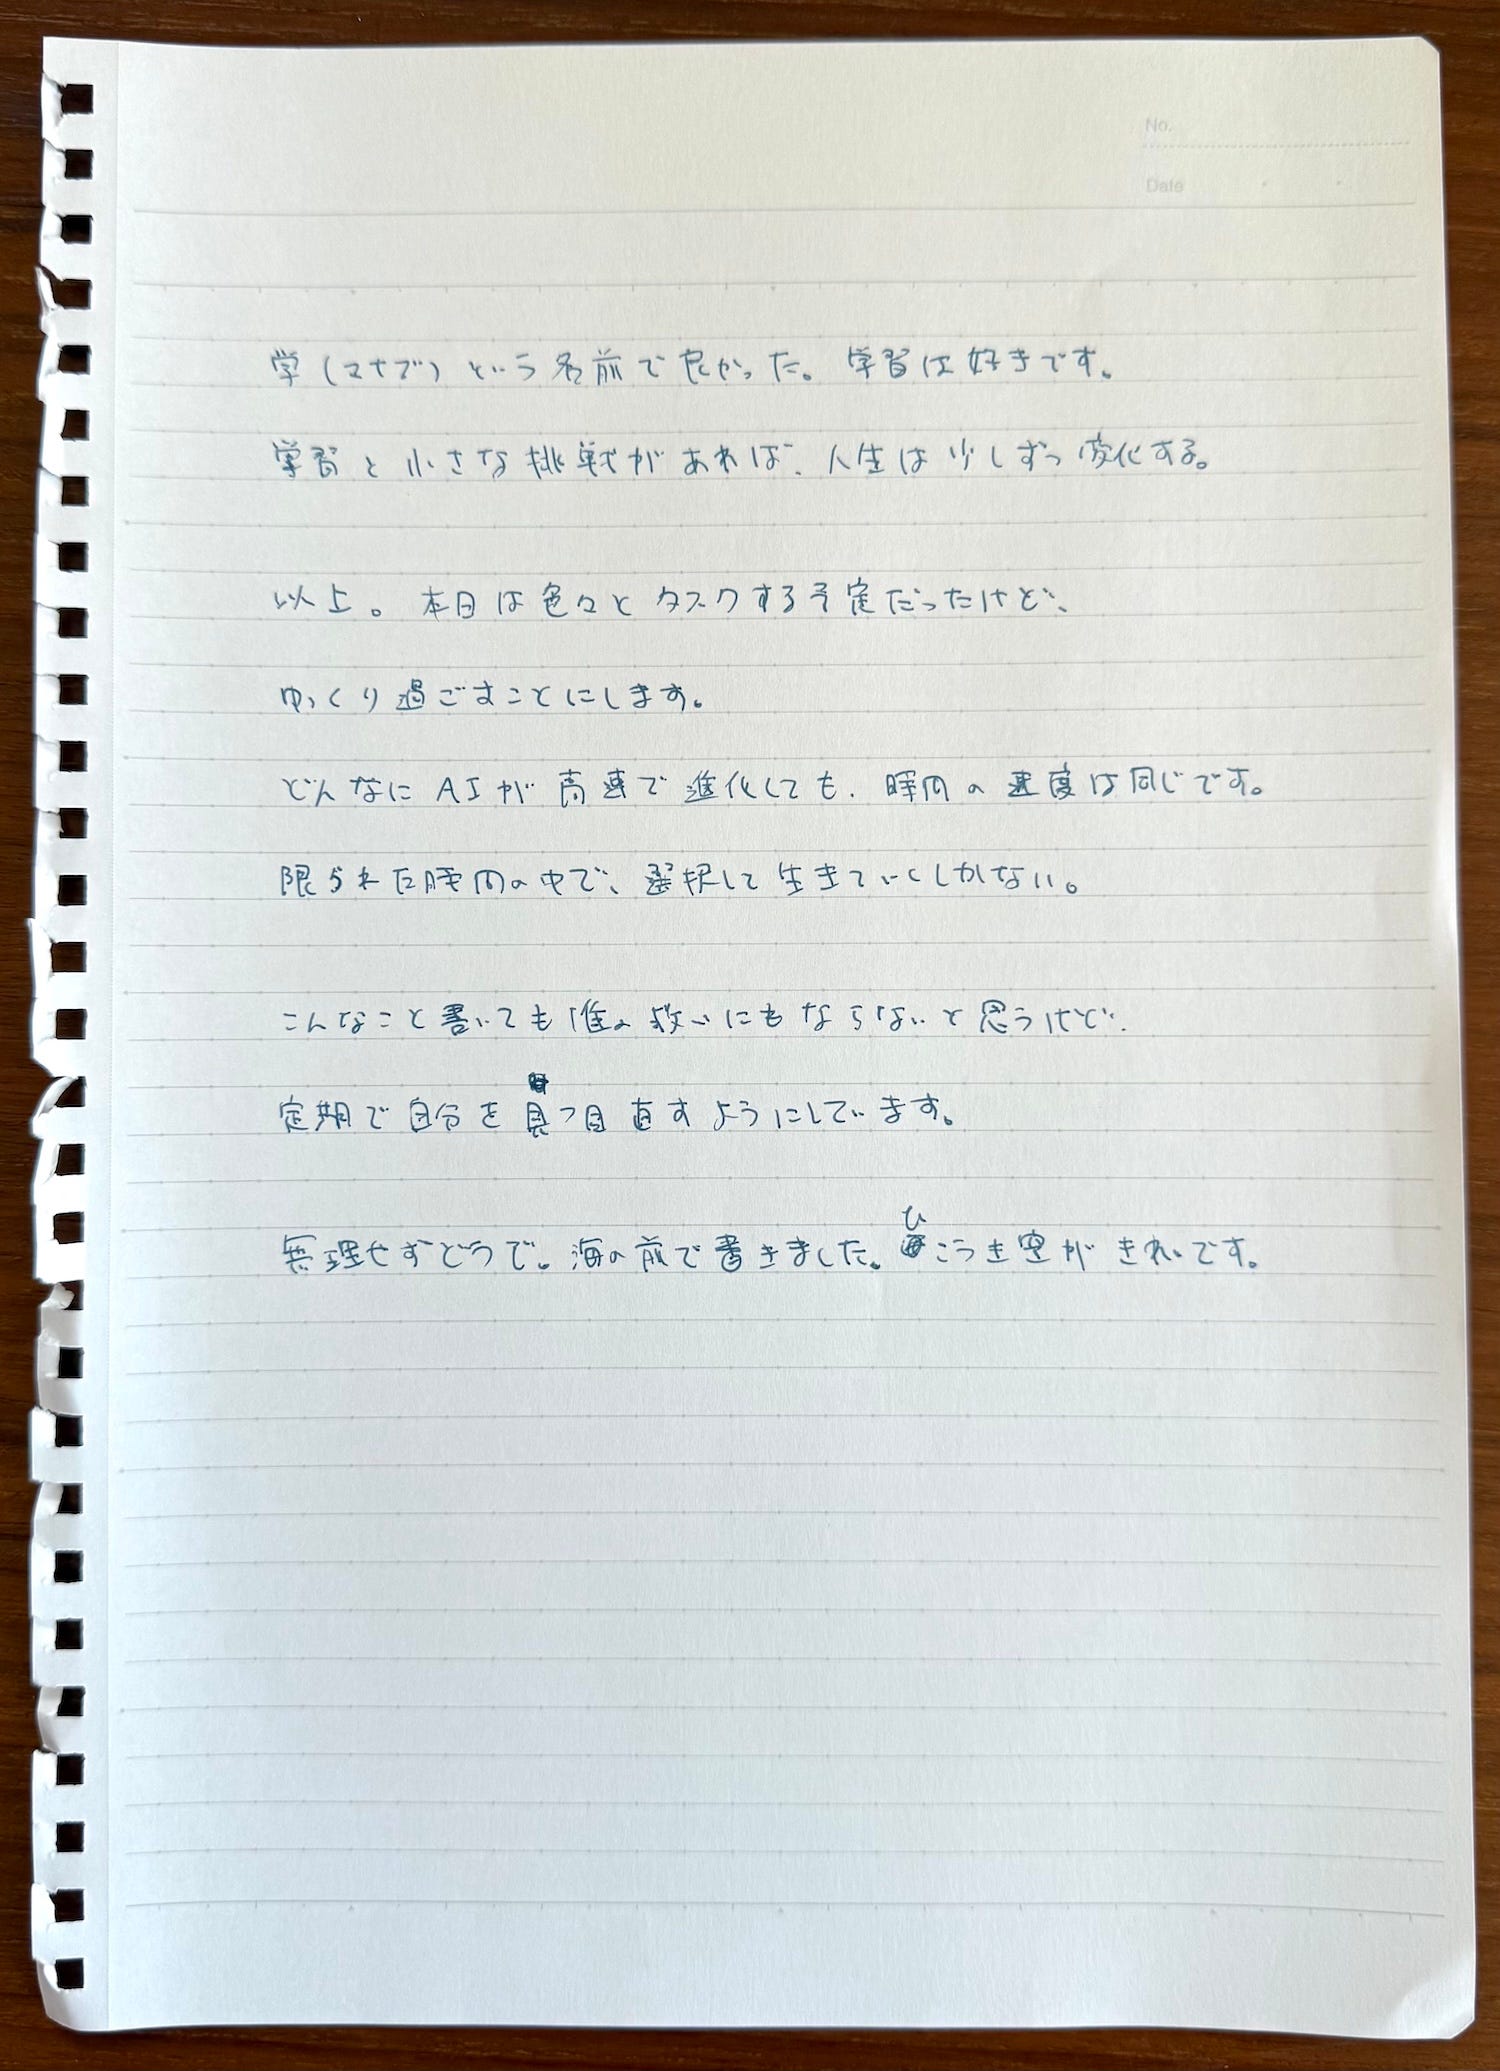 No.
Date
学(マナブ)という名前で良かった。学習は好きです。
学習と小さな挑戦があれば、人生は少しずつ変化する。
以上。本日は色々とタスクする予定だったけど、
ゆっくり過ごすことにします。
どんなにAIが高速で進化しても、時間の速度は同じです。
限られた時間の中で、選択して生きていくしかない。
こんなこと書いても誰の救いにもならないと思うけど、
定期で自分を見つ目直すようにしています。
無理せずどうで。海の前で書きました。ひこうき空がきれいです。